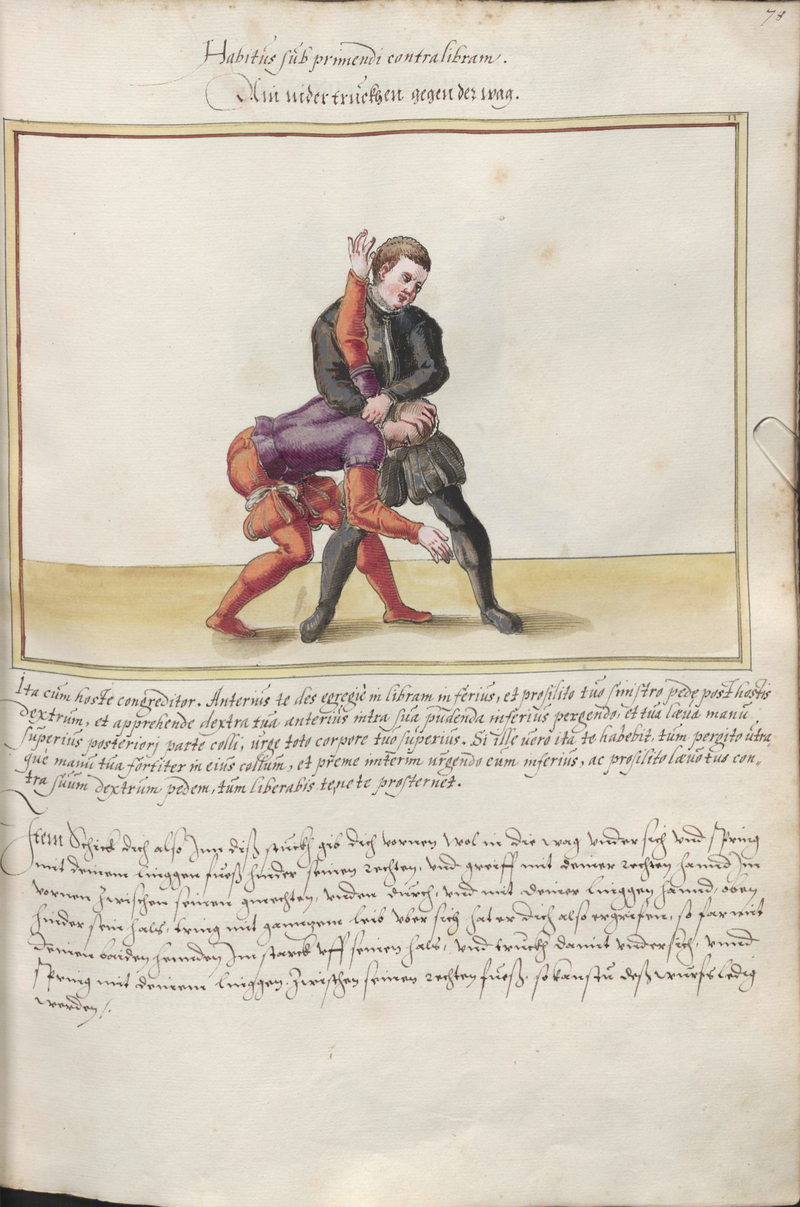 78
Habitus sub primendi contra libram.
Ain nidertruckhen gegen der wag.
11
Ita cum hoste congreditor. Anterius te des egregie in libram inferius, et prosilito tuo sinistro pede post hostis
dextrum, et apprehende dextra tua anterius intra sua pudenda inferius pergendo, et tua læua manu
superius posteriorj parte colli, urge toto corpore tuo superius. Si ille uero ita te habebit, tum pergito utra
que manu tua fortiter in eius collum, et preme initerim urgendo eum inferius, ac prosilito læuo tuo con„
tra suum dextrum pedem, tum liberabis te ne te prosternet.
Item Schick dich also Inn diß stuckh gib dich vornen wol in die wag vnder sich vnd spring
mit deinem linggen fueß hinder seinen rechten, vnd greiff mit deiner rechten hannd Im
vornen zwischen seinen gmechten, vnden durch, vnd mit deiner linggen hannd, oben
hinder sein hals, tring mit ganntzem leib vber sich hat er dich also ergrifen, so far mit
deinen baiden hennden Im starck vff seinen hals, vnd truckh damit vnder sich, vnnd
spring mit deinem linggen. Zwischen seinen rechten fueß, so kanstu deß wurfs ledig
werden /.